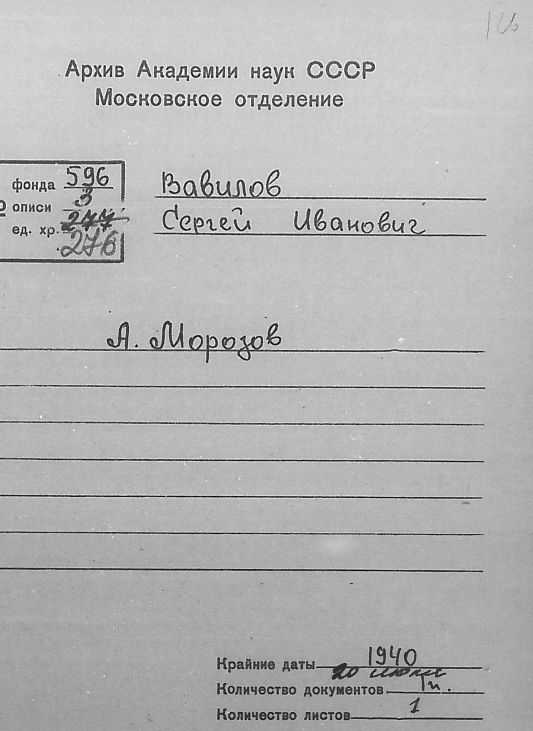 Архив Академии наук СССР
Московское отделение
фонда 596
описи 3
ед. хр. 277
276
Вавилов
Сергей Иванович
А. Морозов
Крайние даты 1940
20 июня
Количество документов 1п.
Количество листов 1